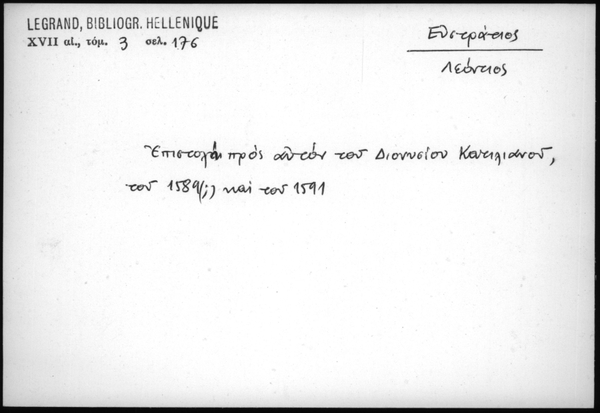 LEGRAND, BIBLIOGR. HELLENIQUE
XVII αἰ., τόμ. 3 σελ. 176
Εὐστράτιος
Λεόντιος
Ἐπιστολαί πρός αὐτόν τοῦ Διονυσίου Κατιλιανοῦ,
τοῦ 1589(;) καί τοῦ 1591